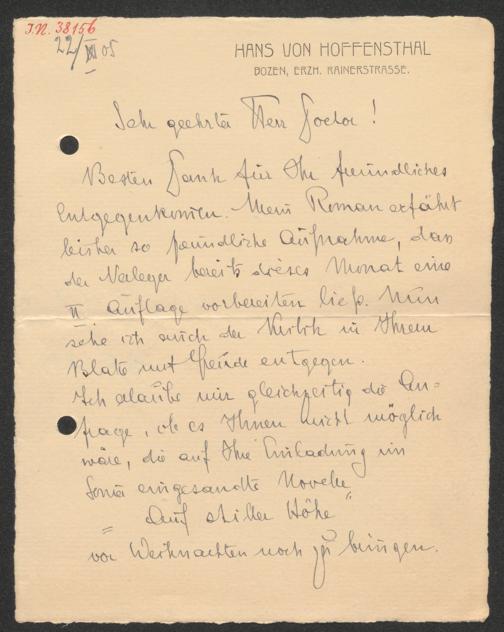 I.N. 38156
22/XI 05
HANS VON HOFFENSTHAL
BOZEN, ERZH. RAINERSTRASSE.
Sehr geehrter Herr Doctor!
Besten Dank für Ihr freundliches
Entgegenkommen. Mein Roman erfährt
bisher so freundliche Aufnahme, dass
der Verleger bereits dieses Monat eine
II Auflage vorbereiten ließ. Nun
sehe ich auch der Kritik in Ihrem
Blatte mit Freude entgegen.
Ich erlaube mir gleichzeitig die An=
frage, ob es Ihnen nicht möglich
wäre, die auf Ihre Einladung im
eingesandte Novelle
"Auf stiller Höhe"
vor Weihnachten noch zu bringen.